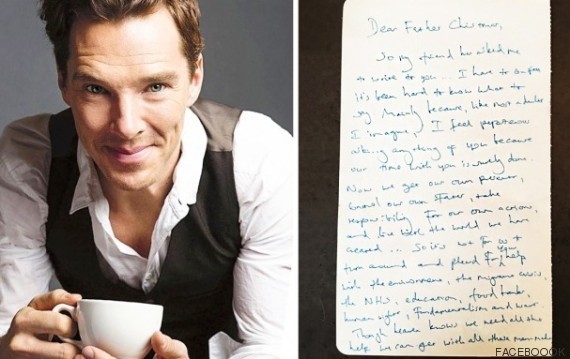 Dear Father Christmas,
So my friend has asked me
to write to you... I have to confess
it's been hard to know what to
say. Mainly because, like most adults
I imagine, I feel
asking anything of you because
our time with you is surely done.
Now we get our own presents,
our own, take
responsibility for our own actions,
and live with the world we have
created... So it's not for us to
turn around and plead for your help
with the environment, the migrant crisis,
the NHS, education, food banks,
human rights, fundamentalism and war.
Though heaven know we need all the
help we can get with all these man made
FACEBOOK